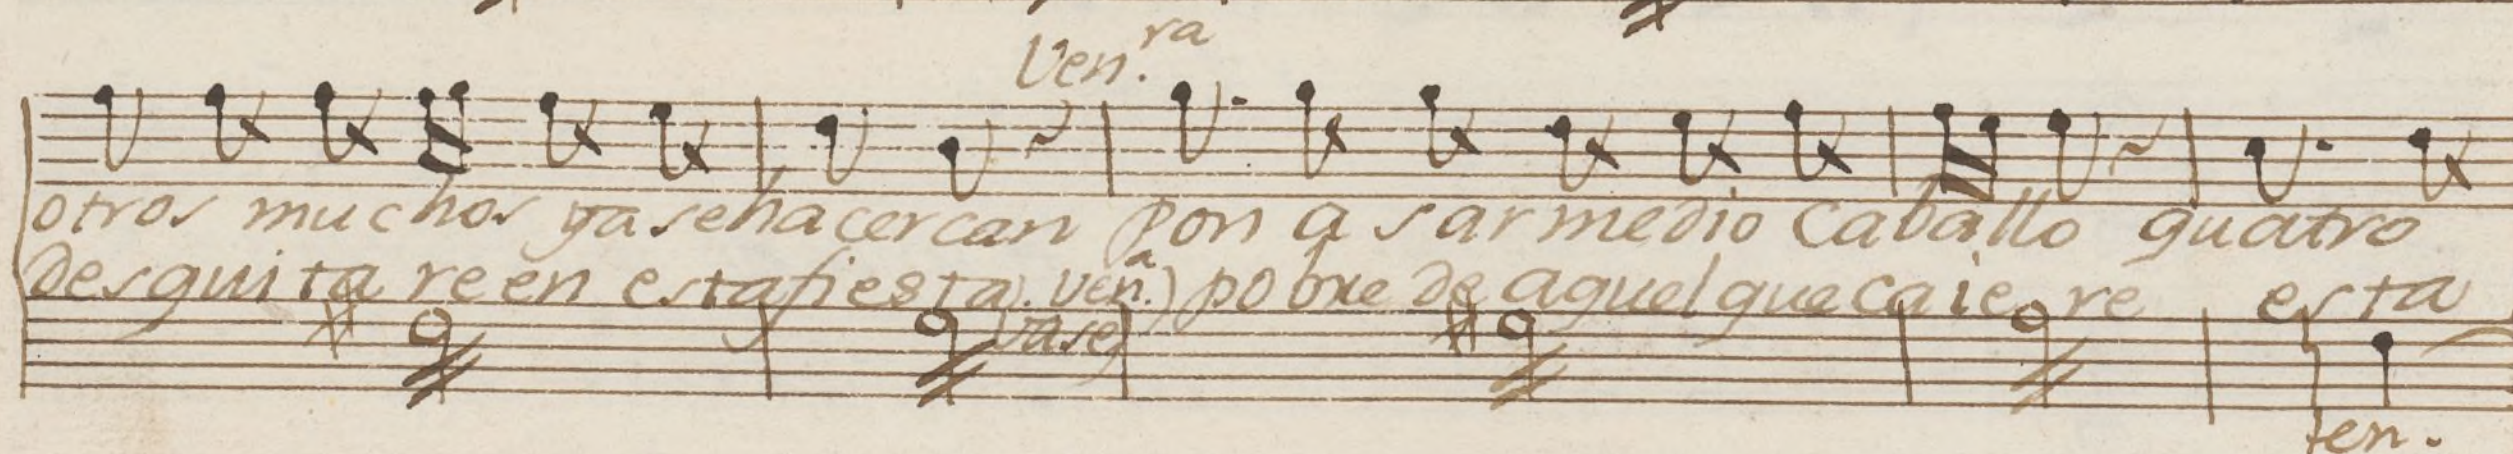 Ven.ra
otros muchos ya se hacercan pon a sar medio caballo quatro
desquitare en esta fiesta). Ven.a) pobre de aquel que caiere esta
vase)
ten.